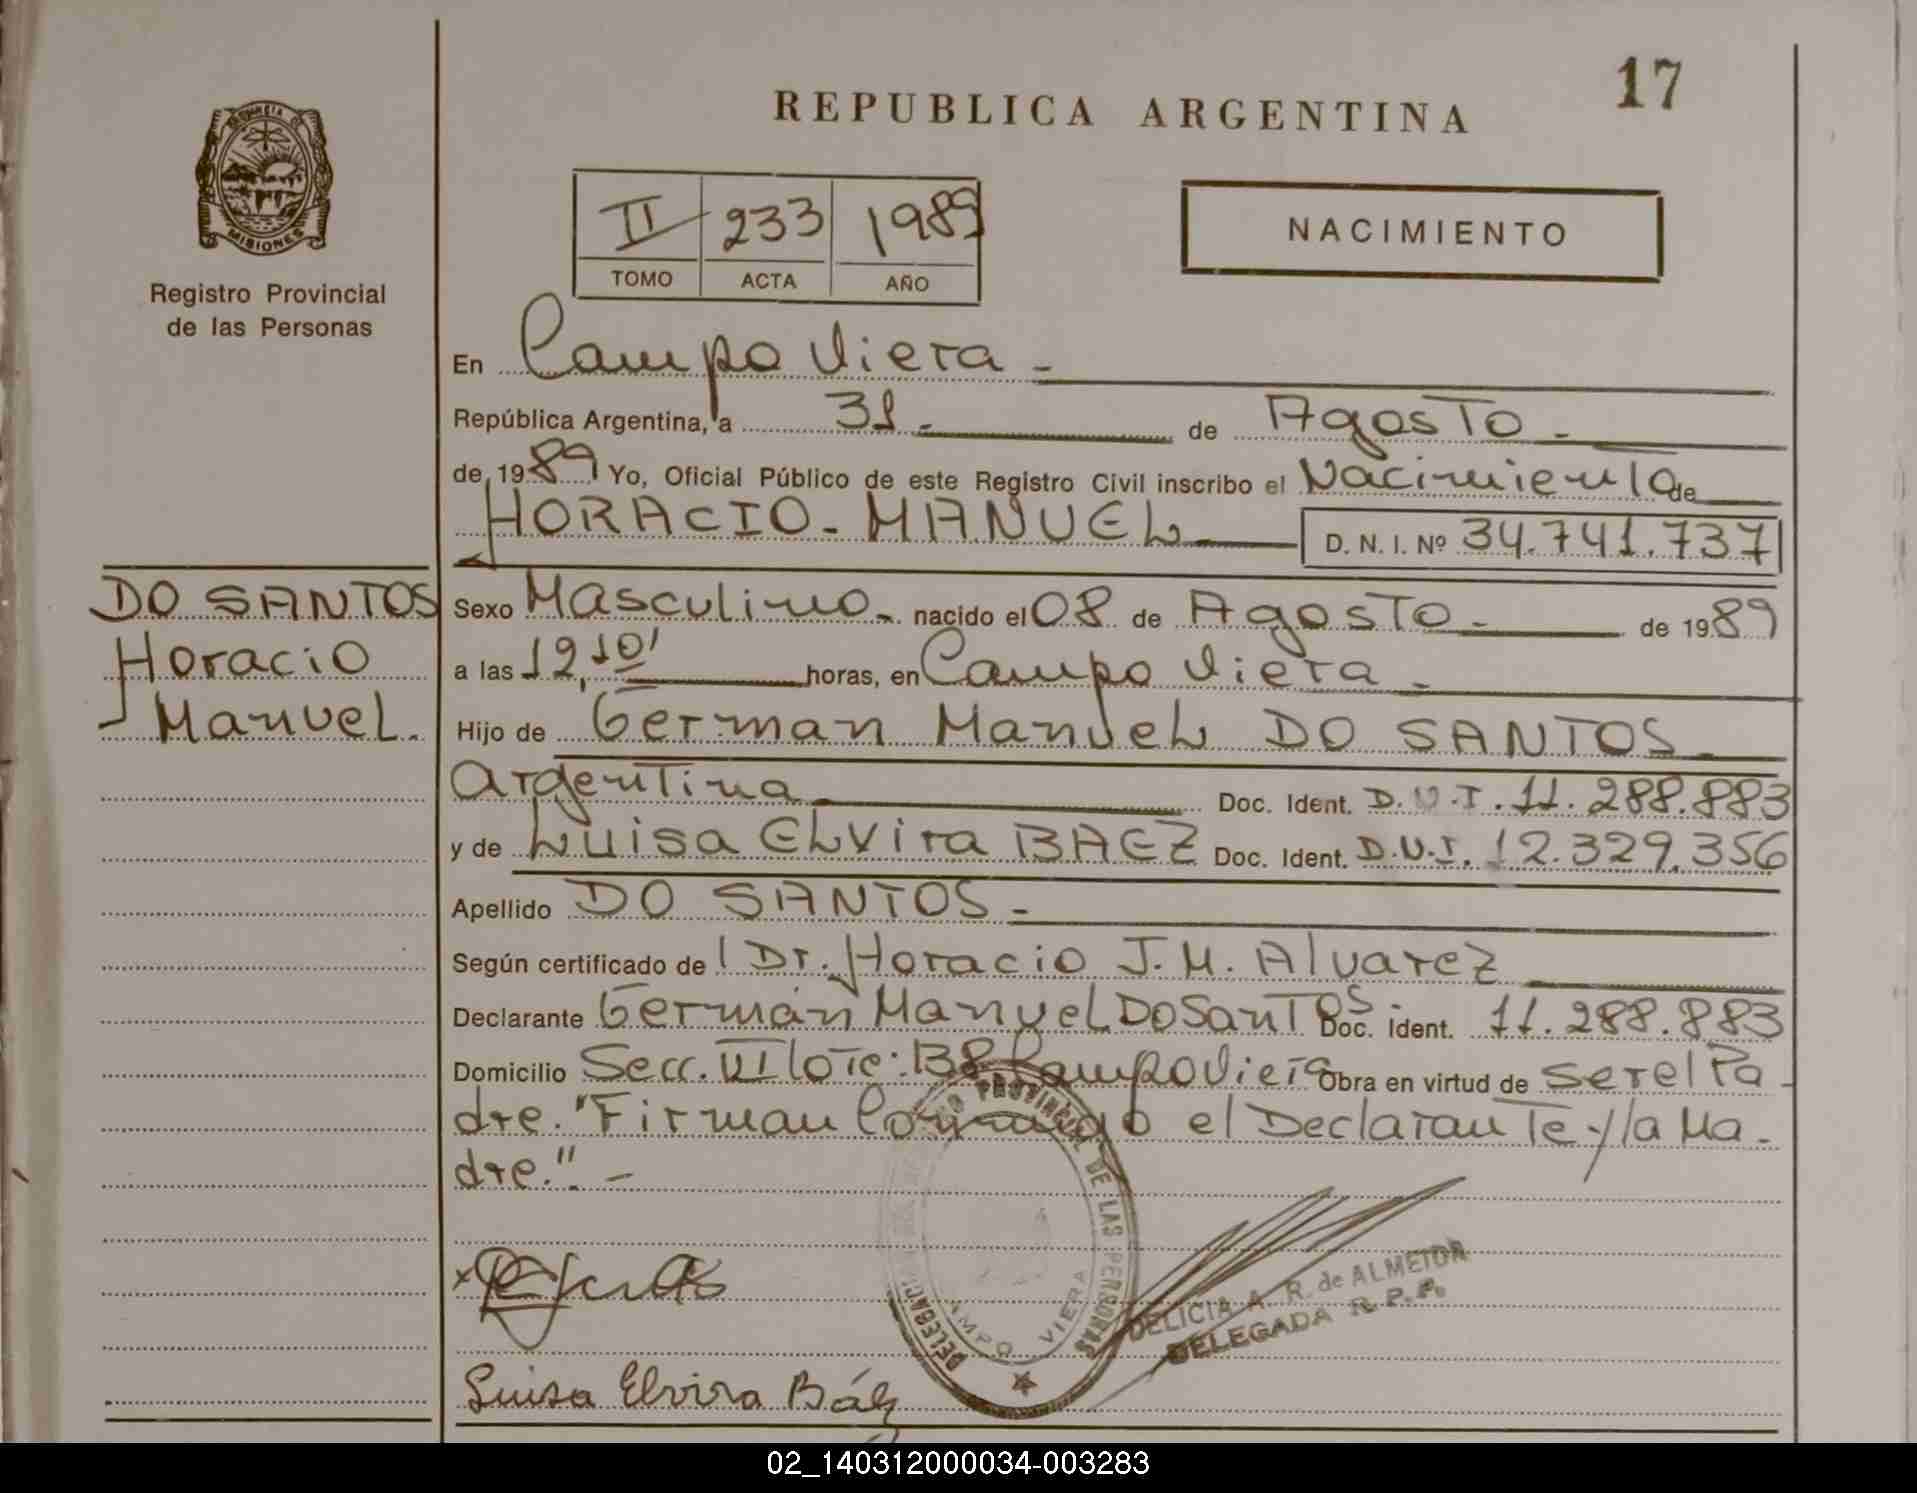 17
REPUBLICA ARGENTINA
PROVINCIA DE
MISIONES
Registro Provincial
de las Personas
II 233 1989
TOMO ACTA AÑO
NACIMIENTO
En Campo Viera -
República Argentina, a 31 - de Agosto -
de 1989 Yo, Oficial Público de este Registro Civil inscribo el Nacimiento de
HORACIO - MANUEL D. N. I. Nº 34.741.737
DO SANTOS
Horacio
Manuel.
Sexo Masculino - nacido el 08 de Agosto - de 1989
a las 12,10' horas, en Campo Viera -
Hijo de German Manuel DO SANTOS -
Argentina Doc. Ident. D.N.I. 11.288.883
y de Luisa Elvira BAEZ Doc. Ident. D.N.I. 12.329.356
Apellido DO SANTOS -
Según certificado de l Dr. Horacio J.M. Alvarez
Declarante Germán Manuel Do Santos. Doc. Ident. 11.288.883
Domicilio Secc. VI lote: 138 Campo Viera Obra en virtud de ser el Pa-
dre. "Firman Conmigo el Declarante y la Ma-
dre." -
PROVINCIAL DE LAS PERSONAS
CAMPO VIERA
DELICIA A. R. de ALMEIDA
DELEGADA R. P. P.
Luisa Elvira Báez
02_140312000034-003283